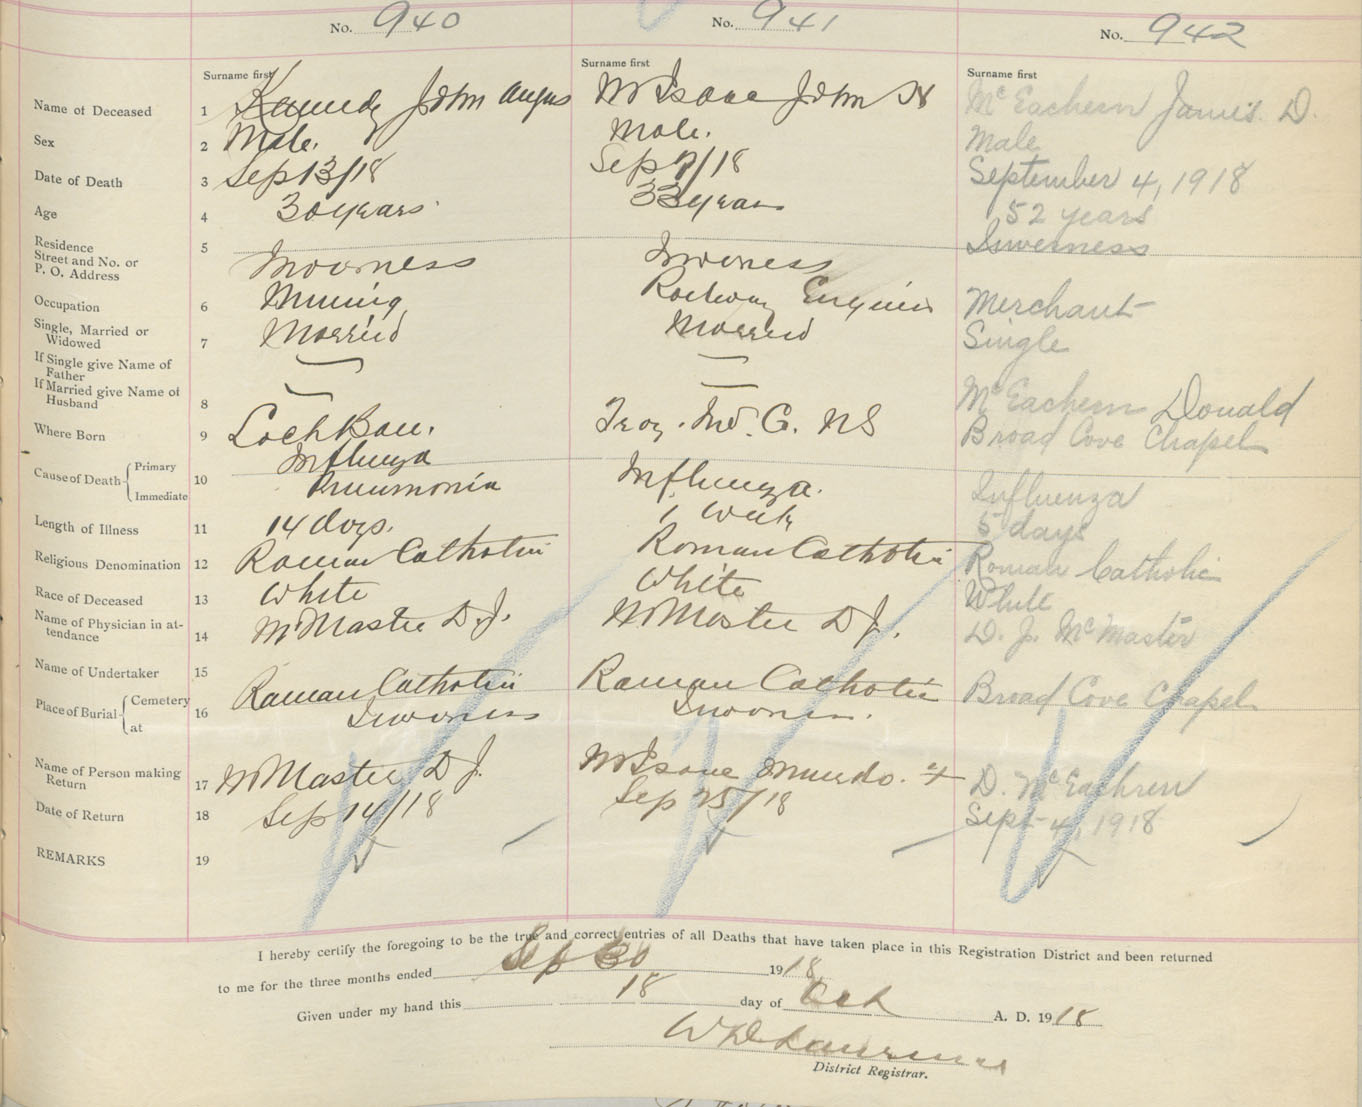 No. 940 No. 941 No. 942
Surname first Surname first Surname first
Name of Deceased 1 Kennedy John Angus McIsaac John H McEachern James. D.
Sex 2 Male. Male. Male
Date of Death 3 Sep 13/18 Sep 7/18 September 4, 1918
Age 4 30 years 33 years 52 years
Residence
Street and No. or
P. O. Address 5 Inverness Inverness Inverness
Occupation 6 Mining Railway Engineer Merchant
Single, Married or
Widowed 7 Married Married Single
If Single give Name of
Father
If Married give Name of
Husband 8 — — McEachern Donald
Where Born 9 Loch Ban. Troy. Inv. C. NS Broad Cove Chapel
Cause of Death { Primary Influenza
Immediate 10 Pneumonia Influenza. Influenza
Length of Illness 11 14 days. 1 Week 5 days
Religious Denomination 12 Roman Catholic Roman Catholic Roman Catholic
Race of Deceased 13 White White White
Name of Physician in at-
tendance 14 McMaster D.J. McMaster D J. D. J. McMaster
Name of Undertaker 15
Place of Burial { Cemetery Roman Catholic Roman Catholic Broad Cove Chapel
at 16 Inverness Inverness.
Name of Person making
Return 17 McMaster D J. McIsaac D. McEachren
Date of Return 18 Sep 14/18 Sep 25/18 Sept 4, 1918
REMARKS 19
I hereby certify the foregoing to be the true and correct entries of all Deaths that have taken place in this Registration District and been returned
to me for the three months ended Sep 30 1918
Given under my hand this 18 day of Oct A. D. 1918
W D Lawrence
District Registrar.